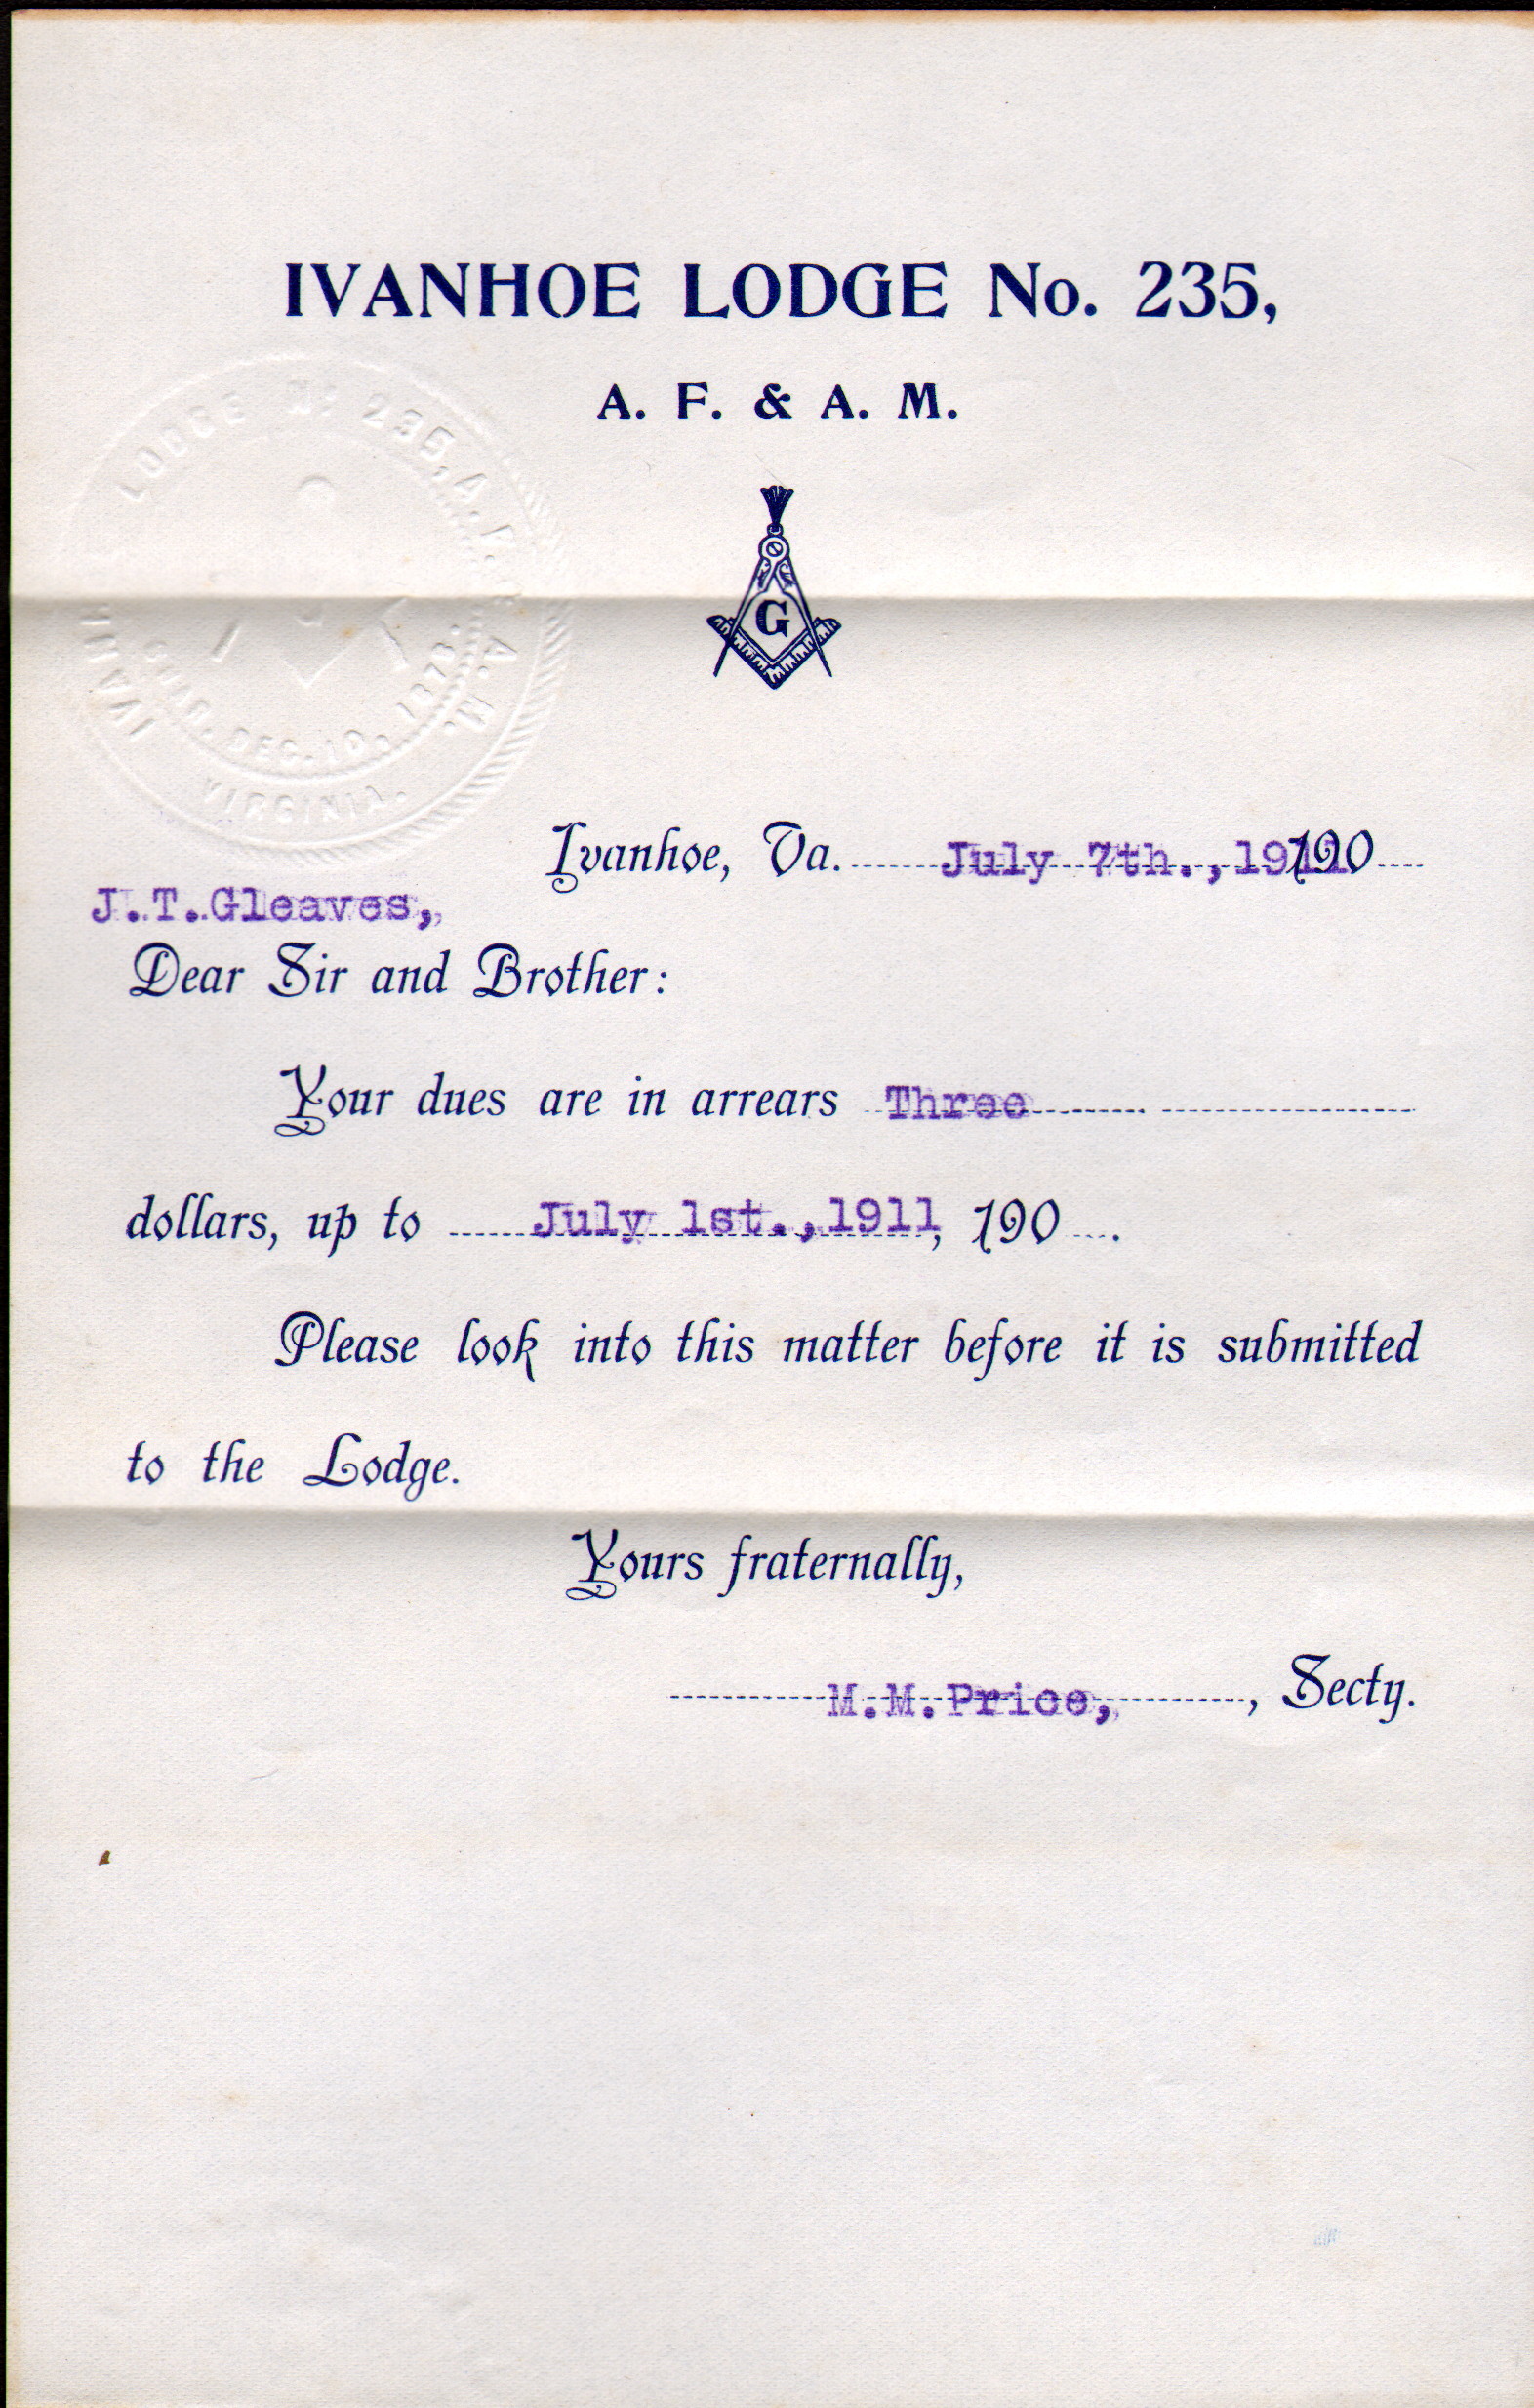 IVANHOE LODGE No. 235,
A. F. & A. M.
G
LODGE No 235, A. F. & A. M.
DEC. 10, 187
VIRGINIA.
Ivanhoe, Va. July 7th., 1911 190
J.T.Gleaves,
Dear Sir and Brother:
Your dues are in arrears Three
dollars, up to July 1st.,1911, 190 .
Please look into this matter before it is submitted
to the Lodge.
Yours fraternally,
M.M.Price, , Secty.